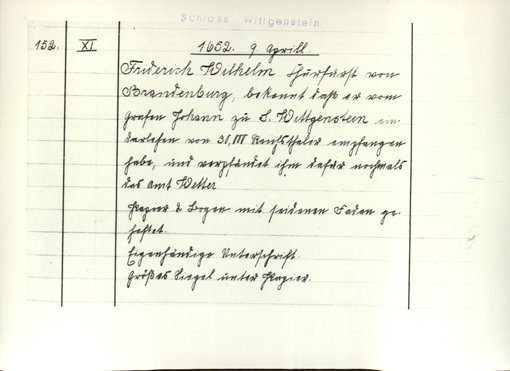 Schloss Wittgenstein
152. XI 1652. 9. Aprill.
Friderich Wilhelm Churfürst von
Brandenburg, bekennt daß er vom
Grafen Johann zu S. Wittgenstein ein
Darlehen von Reichsthaler empfangen
habe, und verpfändet ihm dafür nochmals
das Amt Wetter
Papier 2 Bogen mit seidenen Faden ge-
heftet.
Eigenhändige Unterschrift.
Großes Siegel unter Papier.